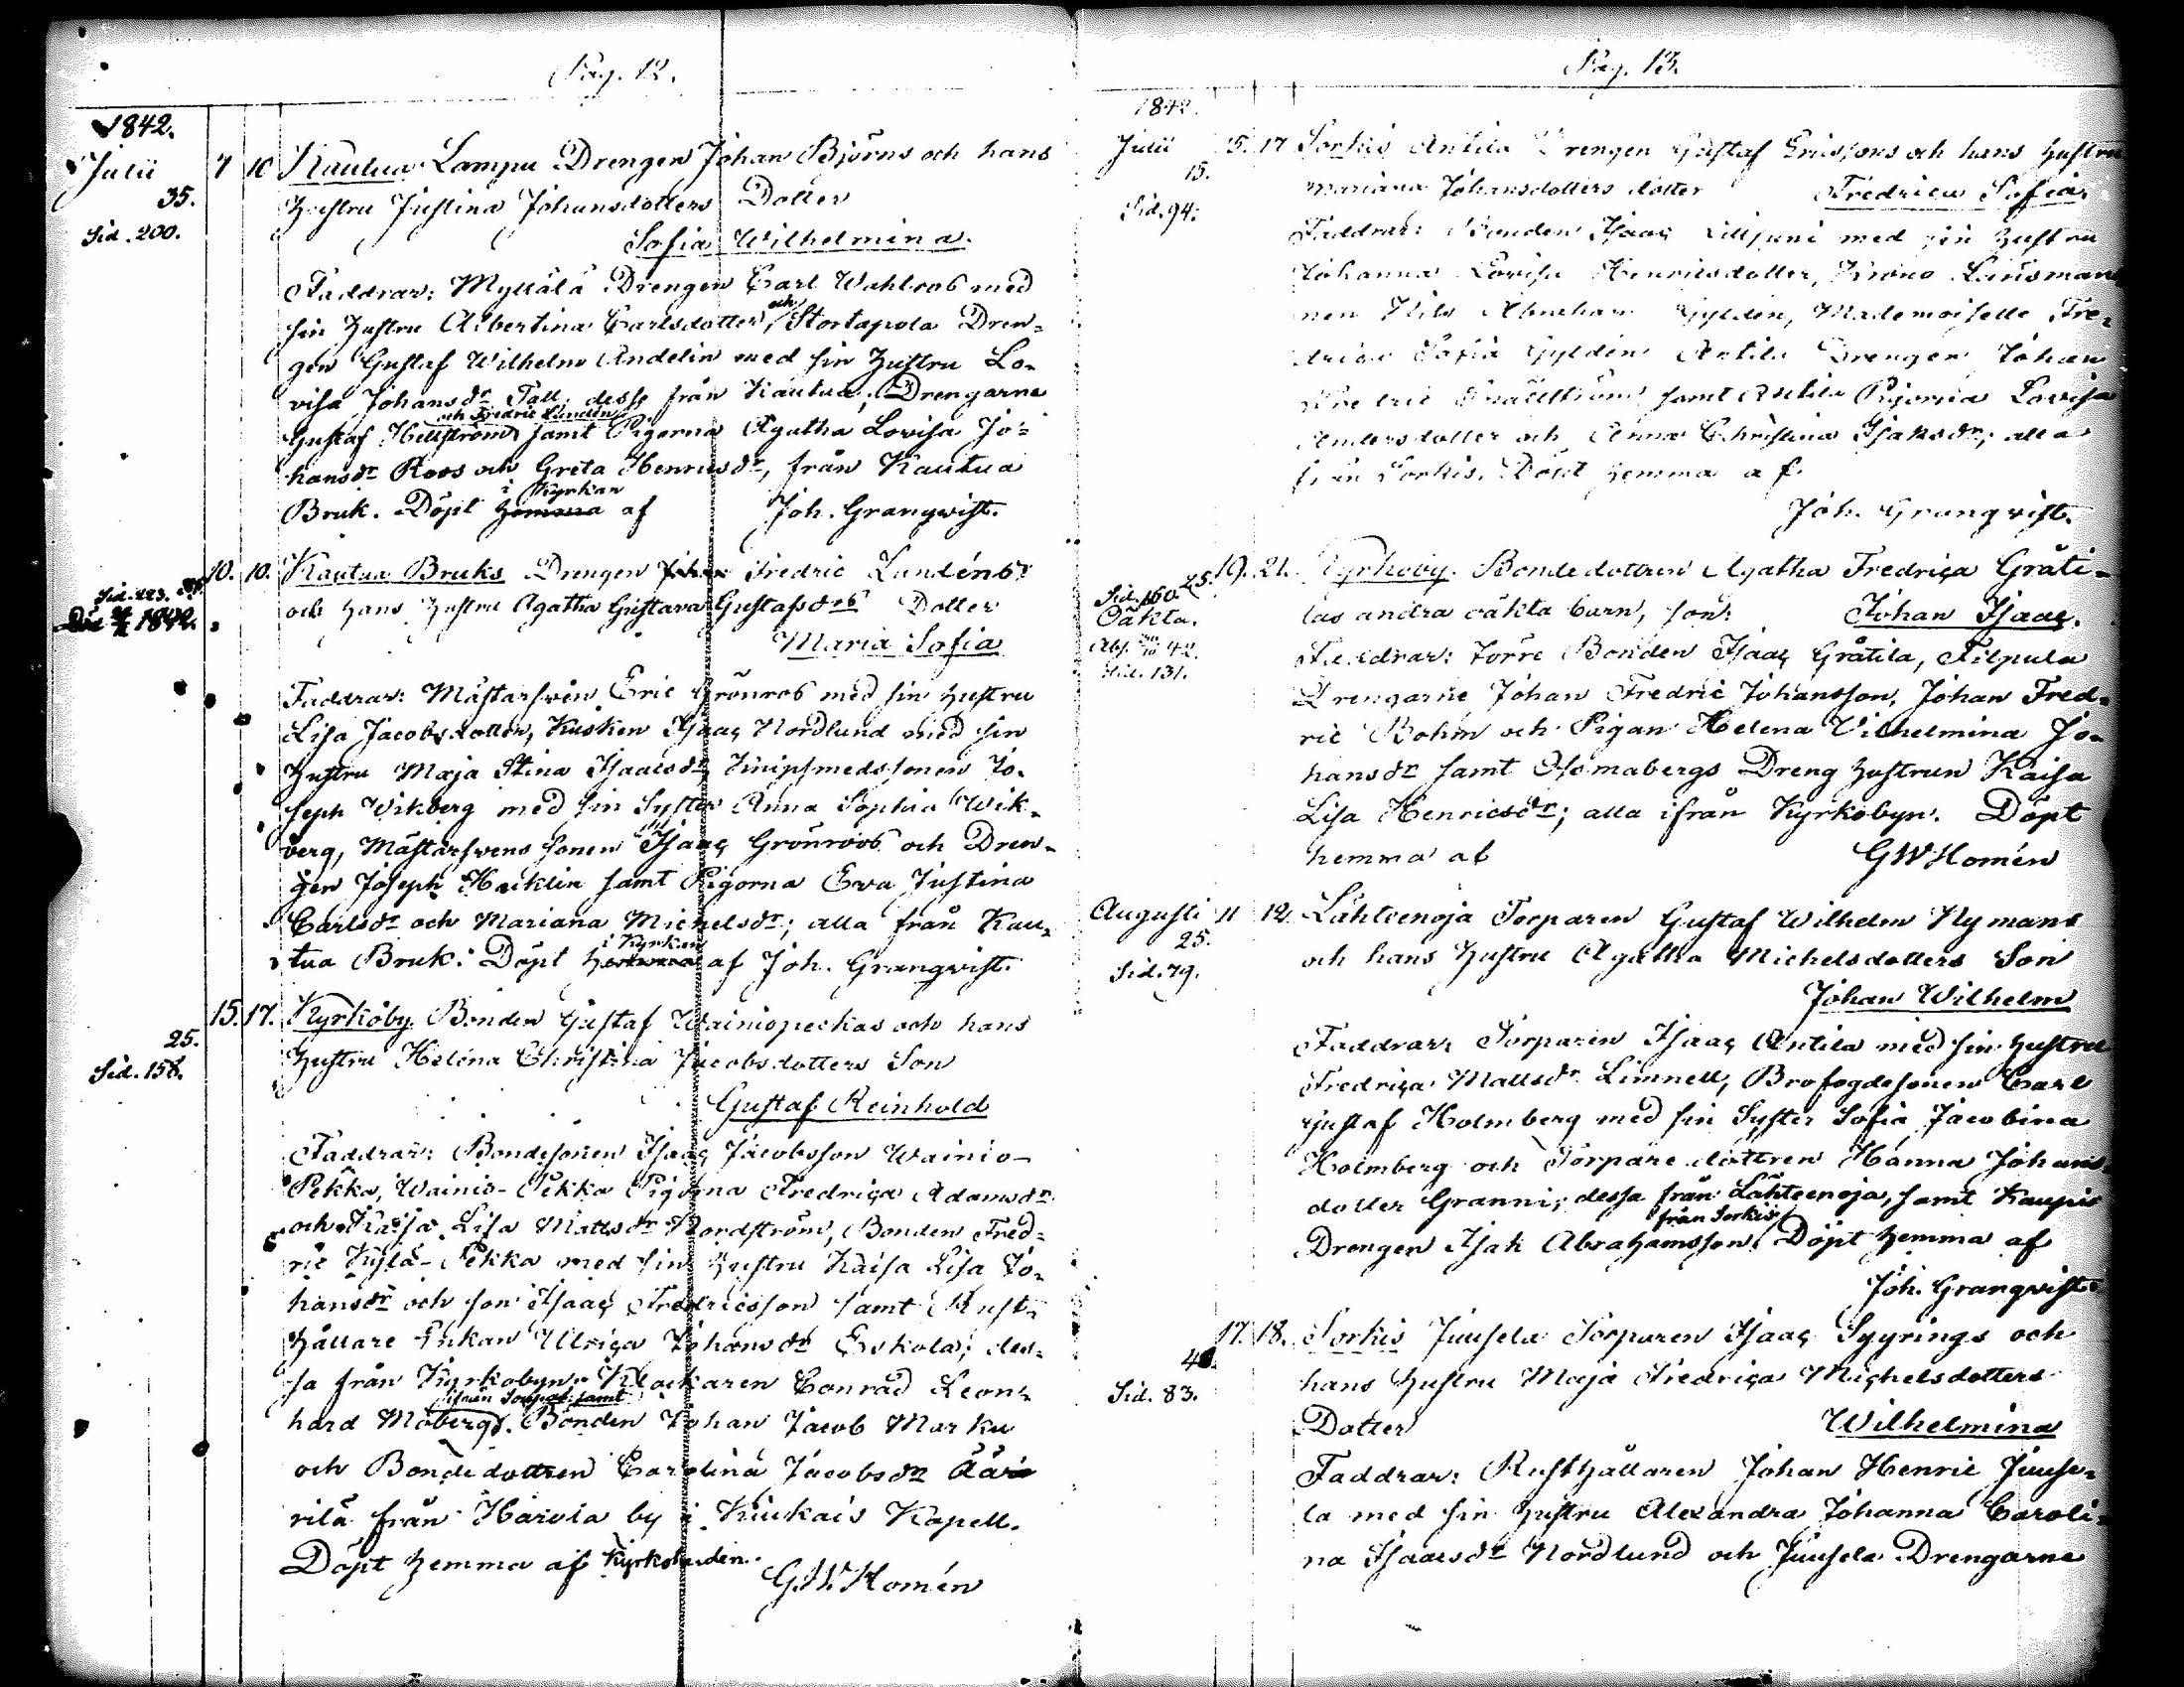 Pag. 12.
1842.
Julii 7 10 Kautua Lampu Drengen Johan Björns och hans
35. Hustru Justina Johansdotters Dotter
Sid. 200. Sofia Wilhelmina.
Faddrar: Myllälä Drengen Carl Wahlroos med
sin Hustru Albertina Carlsdotter, och Stortapola Dren-
gen Gustaf Wilhelm Andelin med sin Hustru Lo-
visa Johansdr Tall, desse från Kautua, Drengarne
och Fredric Lundén
Gustaf Hellström samt Pigorna Agatha Lovisa Jo-
hansdr Roos och Greta Henricsdr, från Kautua
i Kyrkan
Bruk. Döpt hemma af Joh. Granqvist.
10. 10. Kautua Bruks Drengen Johan Fredric Lundéns
Sid. 223.
och Hans Hustru Agatha Gustava Gustafsdrs Dotter
Död 1842.
Maria Sofia
Faddrar: Mästarsven Eric Grönros med sin Hustru
Lisa Jacobsdotter, Kusken Isaac Nordlund med sin
Hustru Maja Stina Isaacsdr, Knipsmedssonen Jo-
seph Wikberg med sin Syster Anna Sophia Wik-
berg, Mästarsvens sonen Isaac Grönroos och Dren-
gen Joseph Haiklin samt Pigorna Eva Justina
Carlsdr och Mariana Michelsdr; alla från Kau-
i Kyrkan
tua Bruk. Döpt hemma af Joh. Granqvist.
15. 17. Kyrkoby Bonden Gustaf Wainiopeckas och hans
25.
Sid. 158. Hustru Helena Christina Jacobsdotters Son
Gustaf Reinhold
Faddrar: Bondesonen Isaac Jacobsson Wainio-
Pekka, Wainio-Pekka Pigorna Fredrica Adamsdr
och Kajsa Lisa Mattsdr Nordström, Bonden Fred-
ric Kylä-Pekka med sin Hustru Kaisa Lisa Jo-
hansdr och son Isaac Fredricsson samt Rust-
hållare Enkan Ulrica Johansdr Eskola; des-
sa från Kyrkobyn. Klockaren Conrad Leon-
hard Moberg. Bonden Johan Jacob Marku
och Bondedottren Carolina Jacobsdr Ääri
rilä från Harola by i Kiukais Kapell.
Döpt hemma af Kyrkoherden.
G.W. Homén
Pag. 13.
1842.
Julii 15. 17 Sorkis Antila Drengen Gustaf Ericssons och hans Hustru
15.
Mariana Johansdotters dotter Fredrica Sofia.
Sid. 94.
Faddrar: Bonden Isaac Lillsuni med sin Hustru
Johanna Lovisa Henricsdotter, Krono Länsman-
nen Nils Abraham Gyldén, Mademoiselle Fre-
drica Sofia Gyldén Antila Drengen Johan
Fredric Snällström samt Antila Pigorna Lovisa
Andersdotter och Anna Christina Isaksdr; alla
från Sorkis. Döpt hemma af
Joh. Granqvist.
19. 21. Kyrkoby. Bondedottren Agatha Fredrica Gråti-
25.
Sid. 160.
las andra oäkta barn, son: Johan Isaac.
Oäkta.
Sid. 131.
Faddrar: Torre Bonden Isaac Gråtila, Filpula
Drengarne Johan Fredric Johansson, Johan Fred-
ric Bohm och Pigan Helena Vilhelmina Jo-
hansdr samt Osomabergs Dreng Hustrun Kaisa
Lisa Henricsdr; alla ifrån Kyrkobyn. Döpt
hemma af GWHomén
Augusti 11 12. Lähteenoja Torparen Gustaf Wilhelm Nymans
25.
och hans Hustru Agatha Michelsdotters Son
Sid. 79.
Johan Wilhelm
Faddrar: Torparen Isaac Antila med sin Hustru
Fredrica Mattsdr Limnell, Brofogdesonen Carl
Gustaf Holmberg med sin Syster Sofia Jacobina
Holmberg och Torparedottren Hanna Johans-
dotter Granni; dessa från Lähteenoja, samt Kaupis
från Sorkis
Drengen Isak Abrahamsson. Döpt hemma af
Joh. Granqvist.
17. 18. Sorkis Juusela Torparen Isaac Syyrings och
hans Hustru Maja Fredrica Michelsdotters
Sid. 83.
Dotter Wilhelmina
Faddrar: Rusthållaren Johan Henric Juuse-
la med sin Hustru Alexandra Johanna Caroli-
na Isaacsdr Nordlund och Juusela Drengarne